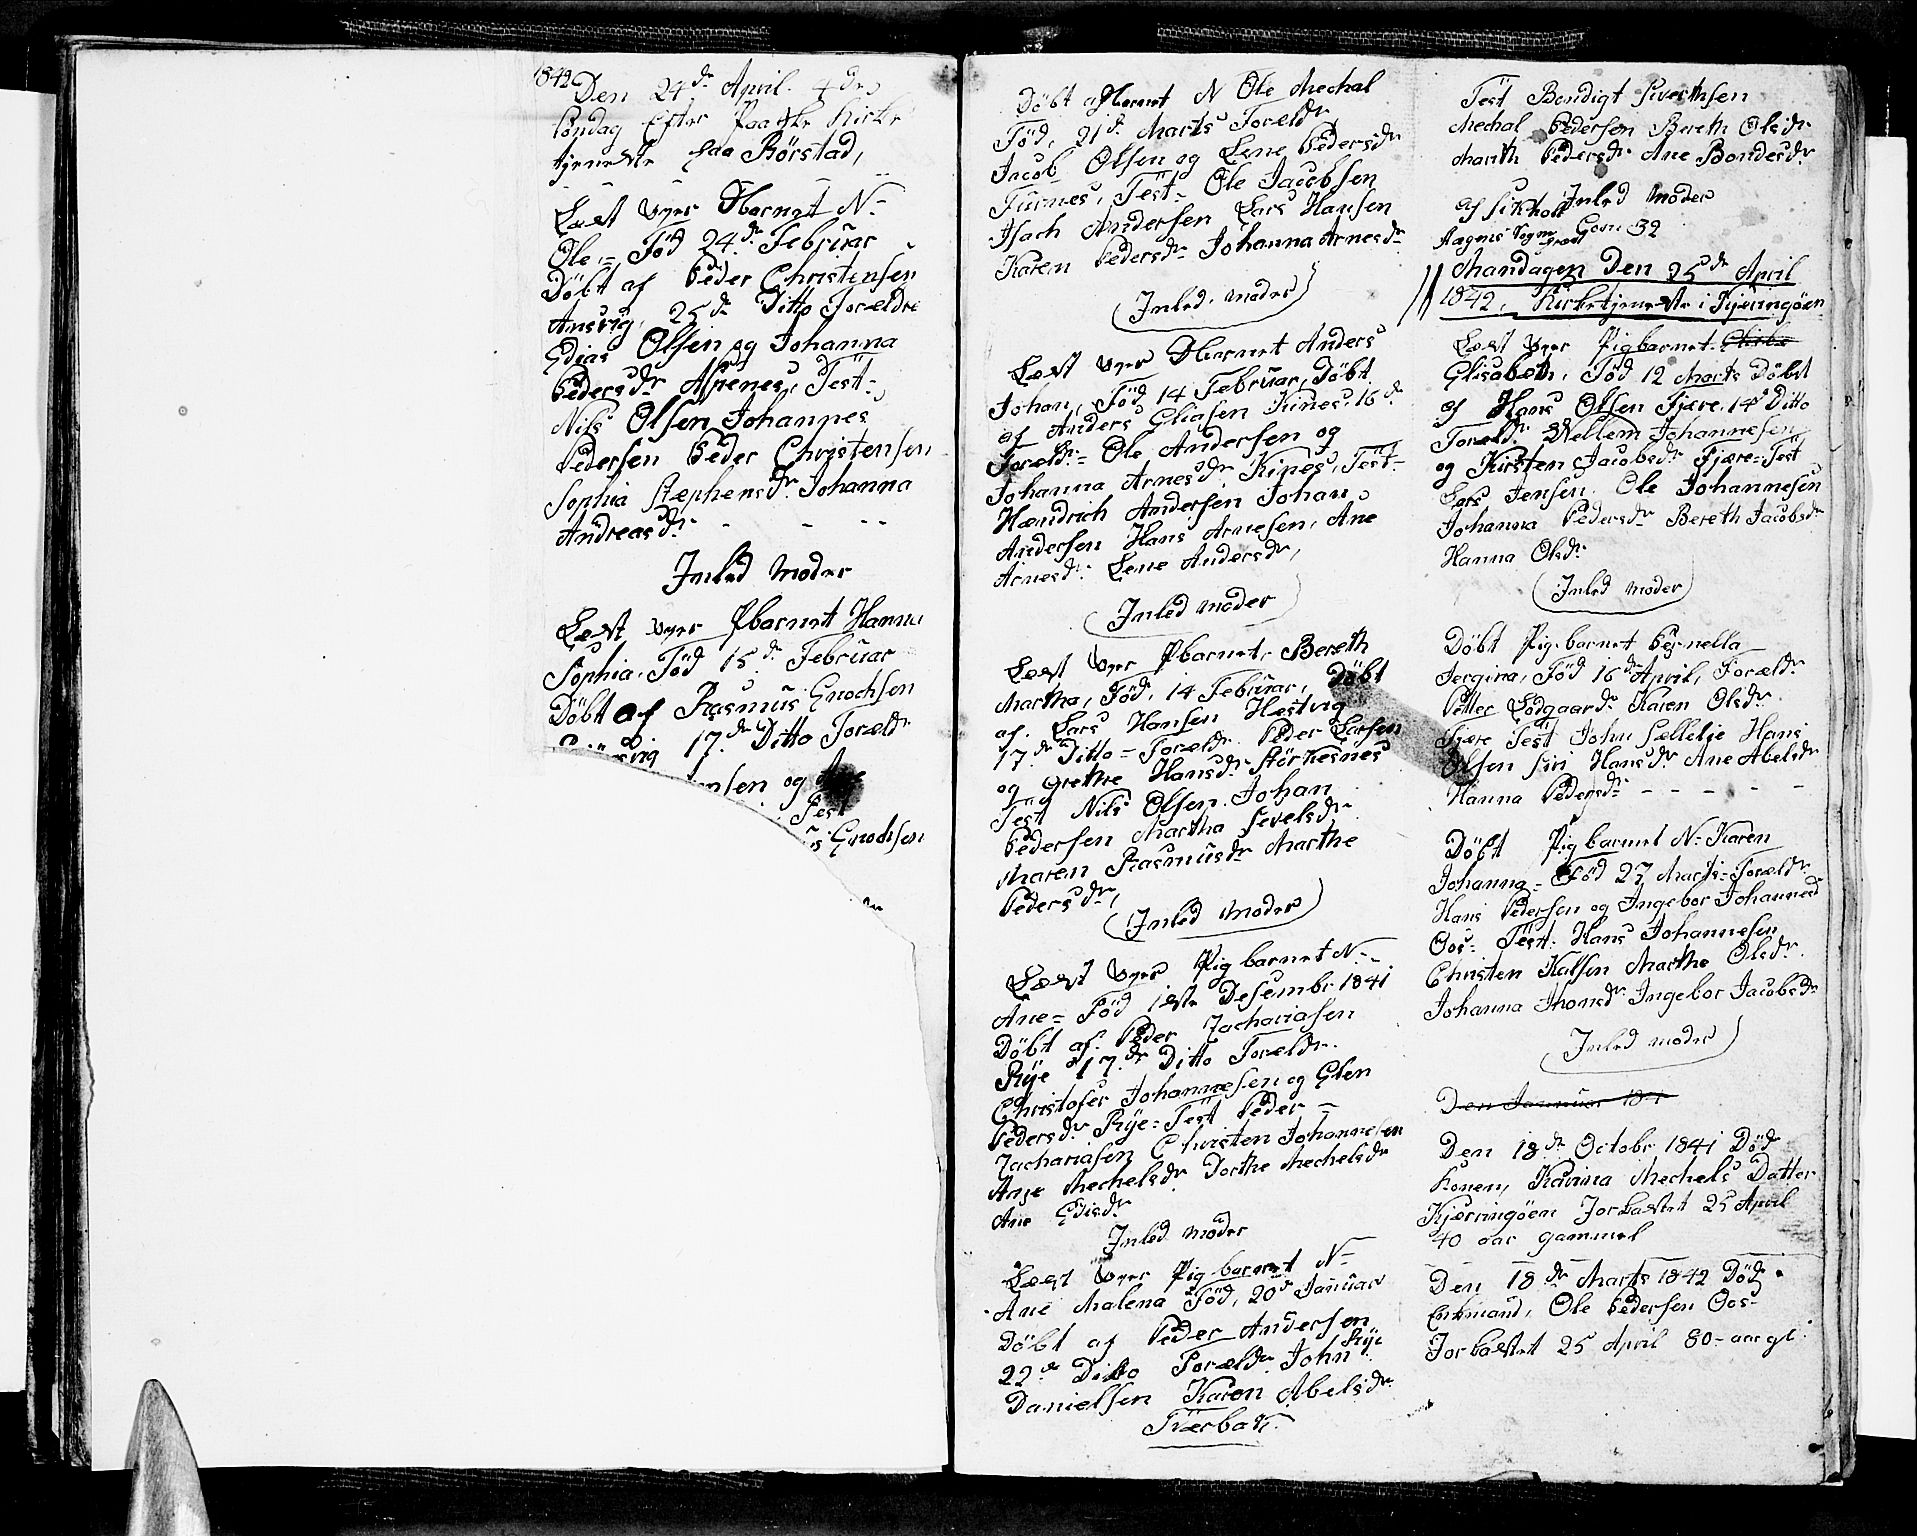 1842 Den 24de April. 4de
Søndag Efter Paaske Kirke
tjeneste paa Rörstad,
Læst over Dbarnet N-
Ole, = Föd 24de Februar
Döbt af Peder Christensen
Ansvig, 25de Ditto Forældre
Edias Olsen og Johanna
Pedersdr Aspenes, Test=
Nils Olsen Johannes
Pedersen Peder Christensen
Sophia Stephensdr. Johanna
Andreasdr. - - -
Inled Moder
Læst over Pbarnet Hanna
Sophia. Föd 15de Februar
Döbt af Rasmus Enochsen
17de Ditto Forældr
ensen og Ane
Test
Enochsen
Döbt Dbarnet N Ole Mechal
Föd, 21de Marts Foreldr
Jacob Olsen og Lene Pedersdr
Furnes, Test= Ole Jacobsen
Isach Andersen Lars Hansen
Karen Pedersdr Johanna Arnesdr
(Inled. Moder)
Læst over Dbarnet Anders
Johan, Föd 14 Februar, Döbt
af Anders Eliasen Kines, 16de
Foreldr= Ole Andersen og
Johanna Arnesdr Kines, Test=
Hendrich Andersen Johan
Andersen Hans Arnesen, Ane
Arnesdr. Lene Andersdr,
(Inled Moder)
Læst over Pbarnet, Bereth
Martha, Föd, 14 Februar, Döbt
af. Lars Hansen Hestvig
17de Ditto = Foreldr. Peder Larsen
og Grethe Hansdr Störkesnes
Test Nils Olsen. Johan
Pedersen Martha Sevelsdr
Maren Rasmusdr Marthe
Pedersdr,
(Inled Moder)
Læst over Pigbarnet N-
Ane = Föd 1ste Desembr 1841
Döbt af. Peder Zachariasen
Rye 17de Ditto Foreldr.
Christofer Johannesen og Elen
Pedersdr Rye = Test Peder =
Zachariasen Christen Johannesen
Ane Mechelsdr Dorthe Mechelsdr
Ane Edisdr
Inled Moder
Læst over Pigbarnet N-
Ane Malena Föd, 20de Januar
Döbt af Peder Andersen
Rye
22de Ditto Foreldr John
Danielsen Karen Abelsdr
Tverbak
Test Bendigt Siverthsen
Mechal Pedersen Bereth Olsdr
Marith Pedersdr Ane Bondesdr
Inled Moder
af Sikhol
Sogn Gom 32
Mandagen Den 25de April
1842, Kirketjeneste i Kjeringöen
Læst over Pigbarnet
Elisabeth, Föd 12 Marts Döbt
af Hans Olsen Fjære. 14de Ditto
Foreldr. Vellem Johannesen
og Kirsten Jacobsdr Fjære = Test
Lars Jensen. Ole Johannesen
Johanna Pedersdr Bereth Jacobsdr
Hanna Olsdr
(Inled Moder)
Döbt Pigbarnet Pernella
Jergina, Föd 16de April, Foreldr
Petter Lodgaardr Karen Olsdr
Fjære Test John Sellelie Hans
Olsen Siri Hansdr Ane Abelsdr
Hanna Pedersdr - - - - -
Döbt Pigbarnet N- Karen
Johanna = Föd 27 Marts = Foreldr
Hans Pedersen og Ingebor Johannesdr
Oos = Test. Hans Johannesen
Christen Kalsen Marthe Olsdr.
Johanna Thomsdr Ingebor Jacobsdr
Inled Moder)
Den Januar 184
Den 18de Octobr 1841 Död
Konen, Karina Mechels Datter
Kjerringöen Jorkastet 25 April
40 aar gammel
Den 18de Marts 1842 Död
Enkmand, Ole Pedersen Oos-
Jorkastet 25 April 80- aar gl.